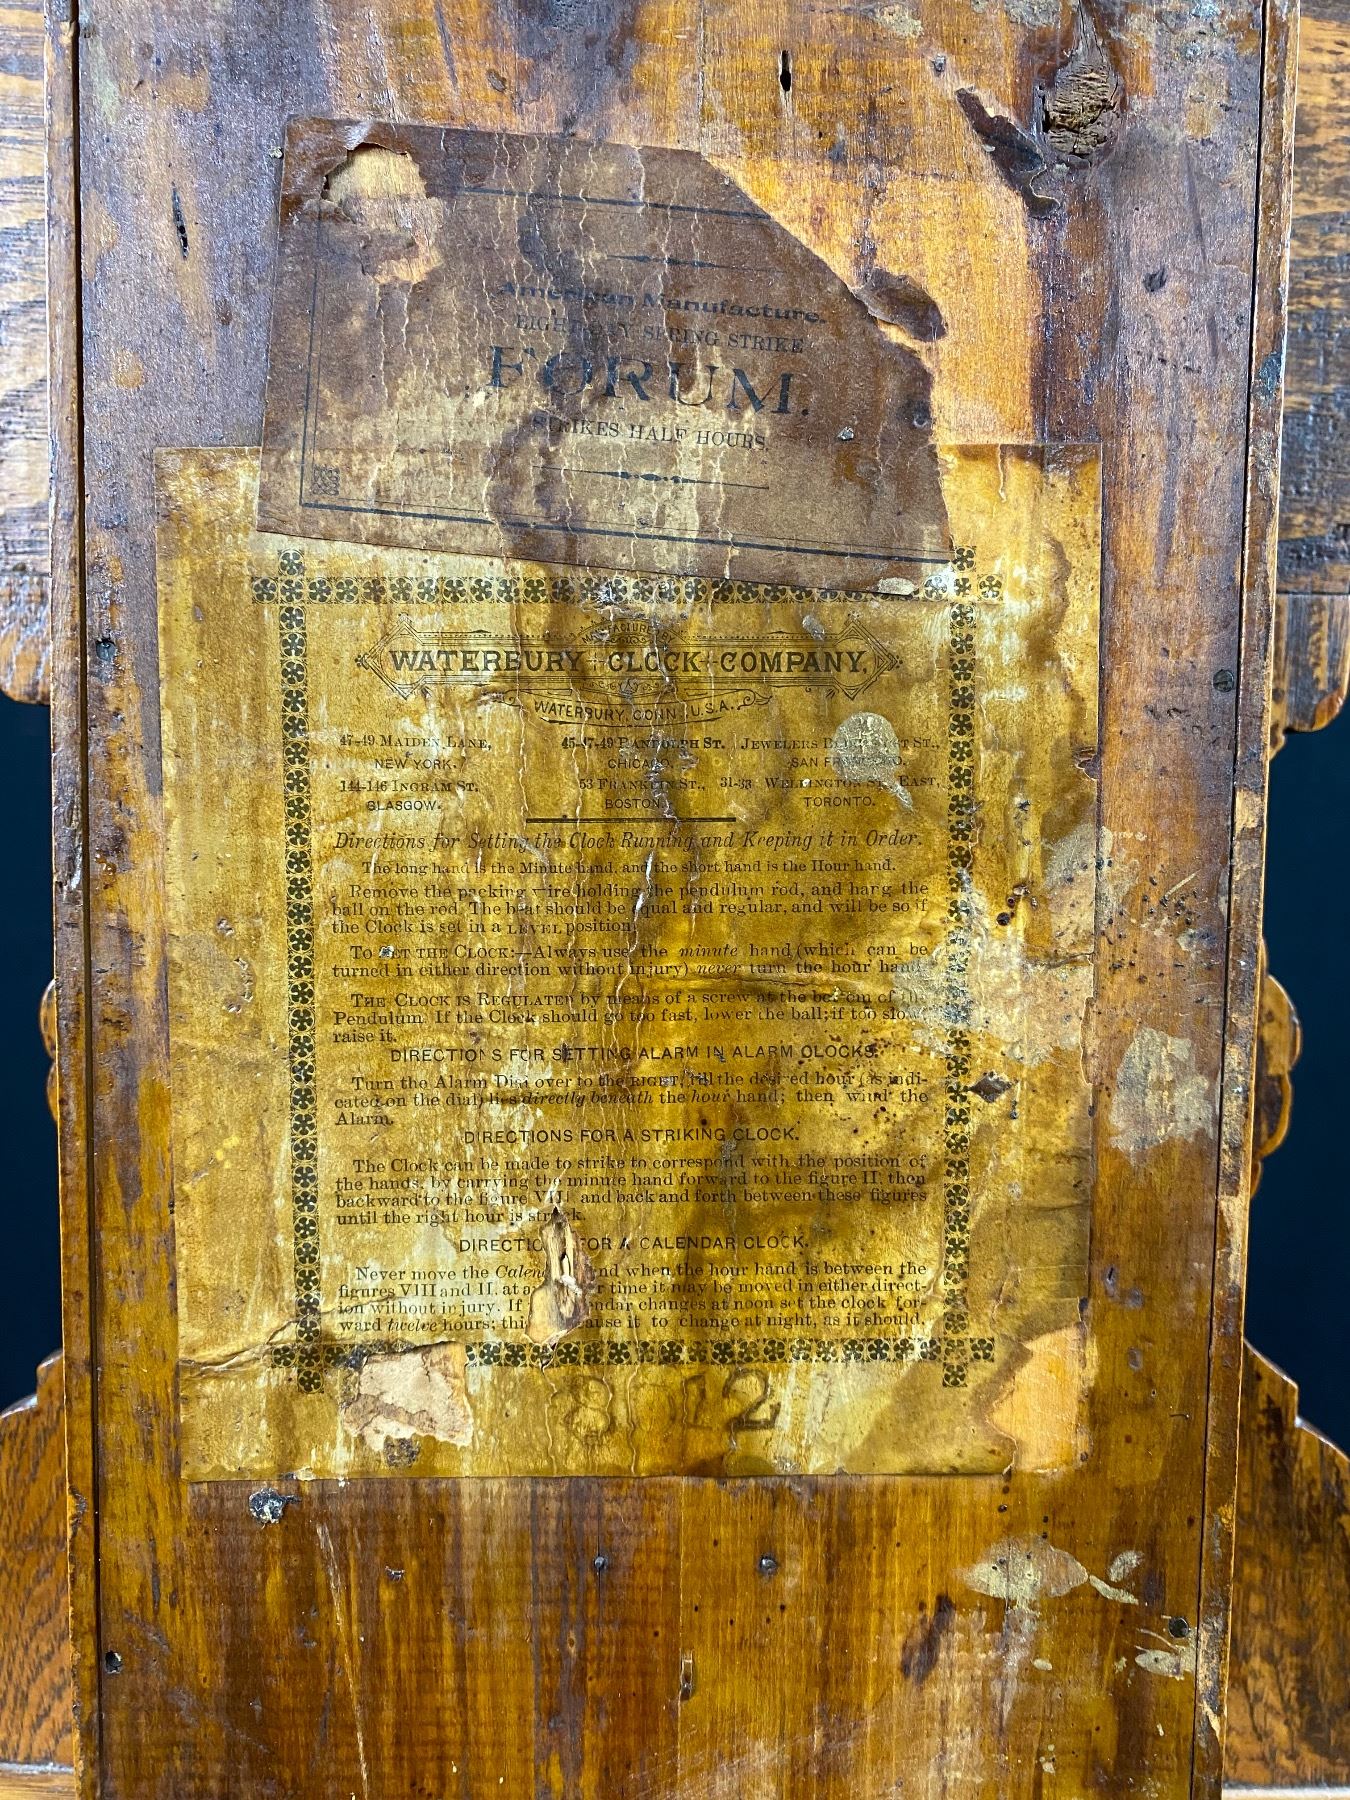 American Manufacture.
EIGHT DAY SPRING STRIKE
FORUM.
STRIKES HALF HOURS.
MANUFACTURED BY
WATERBURY CLOCK COMPANY,
WATERBURY, CONN., U.S.A.
47-49 MAIDEN LANE, 45-47-49 RANDOLPH ST. JEWELERS ST.,
NEW YORK. CHICAGO. SAN FRANCISCO.
144-146 INGRAM ST. 53 FRANKLIN ST., 31-33 WELLINGTON ST., EAST,
GLASGOW. BOSTON. TORONTO.
Directions for Setting the Clock Running and Keeping it in Order.
The long hand is the Minute hand, and the short hand is the Hour hand.
Remove the packing wire holding the pendulum rod, and hang the
ball on the rod. The beat should be equal and regular, and will be so if
the Clock is set in a LEVEL position.
TO SET THE CLOCK:—Always use the minute hand (which can be
turned in either direction without injury) never turn the hour hand.
THE CLOCK IS REGULATED by means of a screw at the bottom of the
Pendulum. If the Clock should go too fast, lower the ball; if too slow,
raise it.
DIRECTIONS FOR SETTING ALARM IN ALARM CLOCKS.
Turn the Alarm Dial over to the RIGHT, till the desired hour (as indi-
cated on the dial) lies directly beneath the hour hand; then wind the
Alarm.
DIRECTIONS FOR A STRIKING CLOCK.
The Clock can be made to strike to correspond with the position of
the hands, by carrying the minute hand forward to the figure II, then
backward to the figure VIII, and back and forth between these figures
until the right hour is struck.
DIRECTIONS FOR A CALENDAR CLOCK.
Never move the Calendar hand when the hour hand is between the
figures VIII and II, at any other time it may be moved in either direct-
ion without injury. If calendar changes at noon set the clock for-
ward twelve hours; this cause it to change at night, as it should.